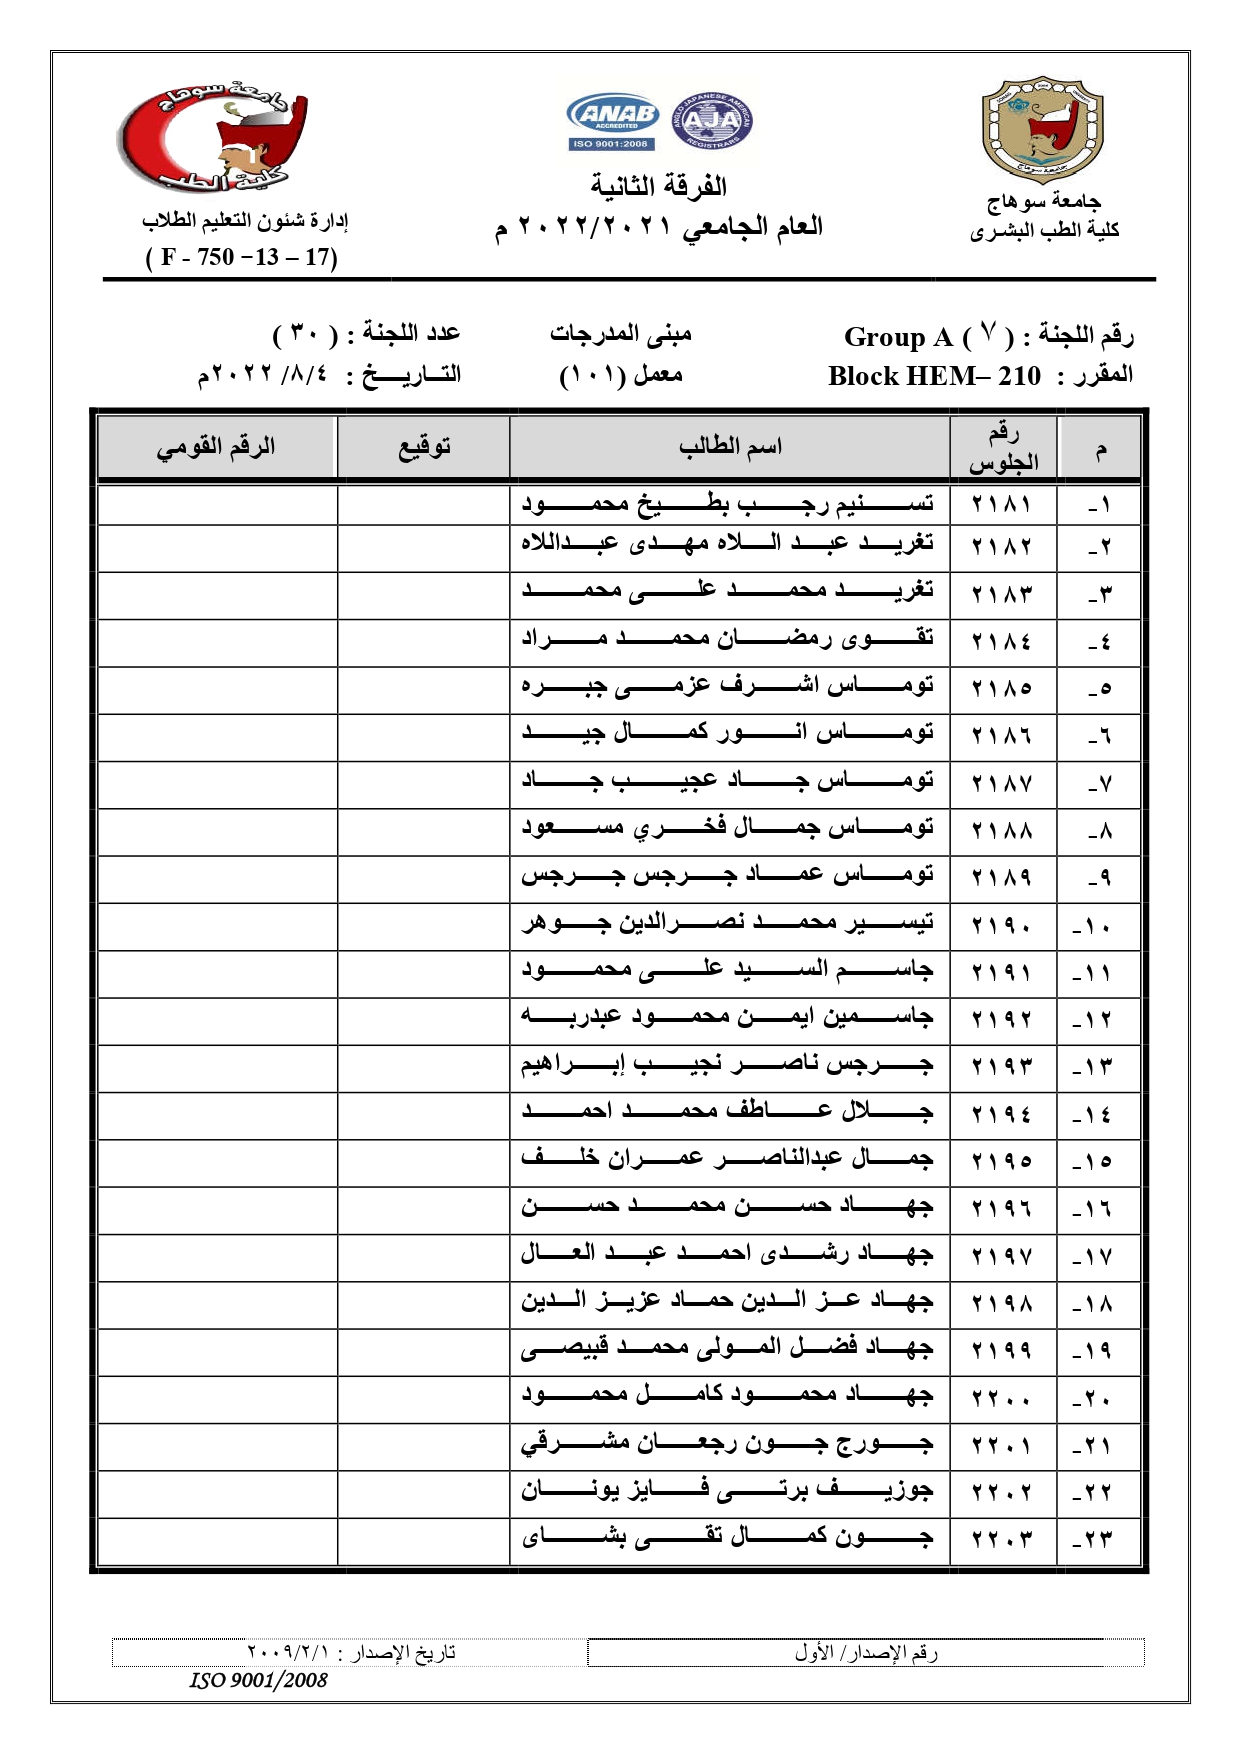 جامعة سوهاج
كلية الطب
ANAB
ACCREDITED
ISO 9001:2008
ANGLO JAPANESE AMERICAN
AJA
REGISTRARS
جامعة سوهاج
جامعة سوهاج
كلية الطب البشرى
الفرقة الثانية
العام الجامعي ٢٠٢٢/٢٠٢١ م
إدارة شئون التعليم الطلاب
( F - 750 –13 – 17)
رقم اللجنة : ( ٧ ) Group A مبنى المدرجات عدد اللجنة : ( ٣٠ )
المقرر : Block HEM– 210 معمل (١٠١) التاريخ : ٢٠٢٢ /٨/٤م
م رقم الجلوس اسم الطالب توقيع الرقم القومي
١- ٢١٨١ تسنيم رجب بطيخ محمود
٢- ٢١٨٢ تغريد عبد اللاه مهدى عبداللاه
٣- ٢١٨٣ تغريد محمد على محمد
٤- ٢١٨٤ تقوى رمضان محمد مراد
٥- ٢١٨٥ توماس اشرف عزمى جبره
٦- ٢١٨٦ توماس انور كمال جيد
٧- ٢١٨٧ توماس جاد عجيب جاد
٨- ٢١٨٨ توماس جمال فخري مسعود
٩- ٢١٨٩ توماس عماد جرجس جرجس
١٠- ٢١٩٠ تيسير محمد نصرالدين جوهر
١١- ٢١٩١ جاسم السيد على محمود
١٢- ٢١٩٢ جاسمين ايمن محمود عبدربه
١٣- ٢١٩٣ جرجس ناصر نجيب إبراهيم
١٤- ٢١٩٤ جلال عاطف محمد احمد
١٥- ٢١٩٥ جمال عبدالناصر عمران خلف
١٦- ٢١٩٦ جهاد حسن محمد حسن
١٧- ٢١٩٧ جهاد رشدى احمد عبد العال
١٨- ٢١٩٨ جهاد عز الدين حماد عزيز الدين
١٩- ٢١٩٩ جهاد فضل المولى محمد قبيصى
٢٠- ٢٢٠٠ جهاد محمود كامل محمود
٢١- ٢٢٠١ جورج جون رجعان مشرقي
٢٢- ٢٢٠٢ جوزيف برتى فايز يونان
٢٣- ٢٢٠٣ جون كمال تقى بشاى
رقم الإصدار/ الأول تاريخ الإصدار : ٢٠٠٩/٢/١
ISO 9001/2008